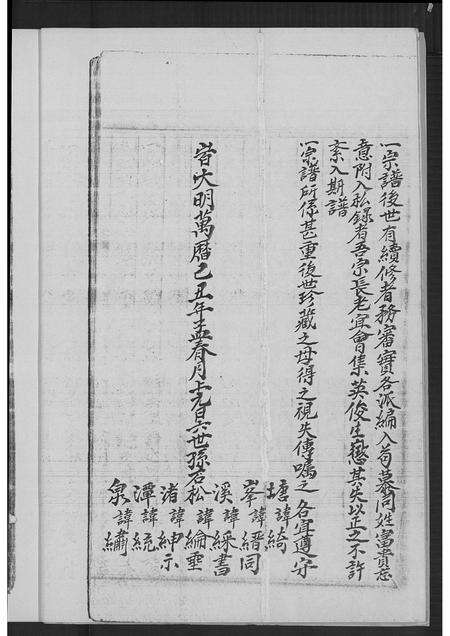 一宗譜後世有續修者務審實各派編入苟慕同姓富貴恣
意附入私錄者吾宗長老宜會集英俊生懲其失以正之不許
紊入斯譜
一宗譜所係甚重後世珍藏之毋得之視失傳囑之各宜遵守
皆大明萬曆己丑年孟春月上元日六世孫石松
塘諱綺
峯諱縉同
溪諱綵書
諱綸垂
渚諱紳示
潭諱統
泉諱繡